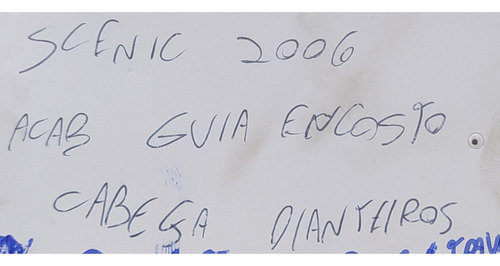 SCENIC 2006
ACAB GUIA ENCOSTO
CABEÇA DIANTEIROS